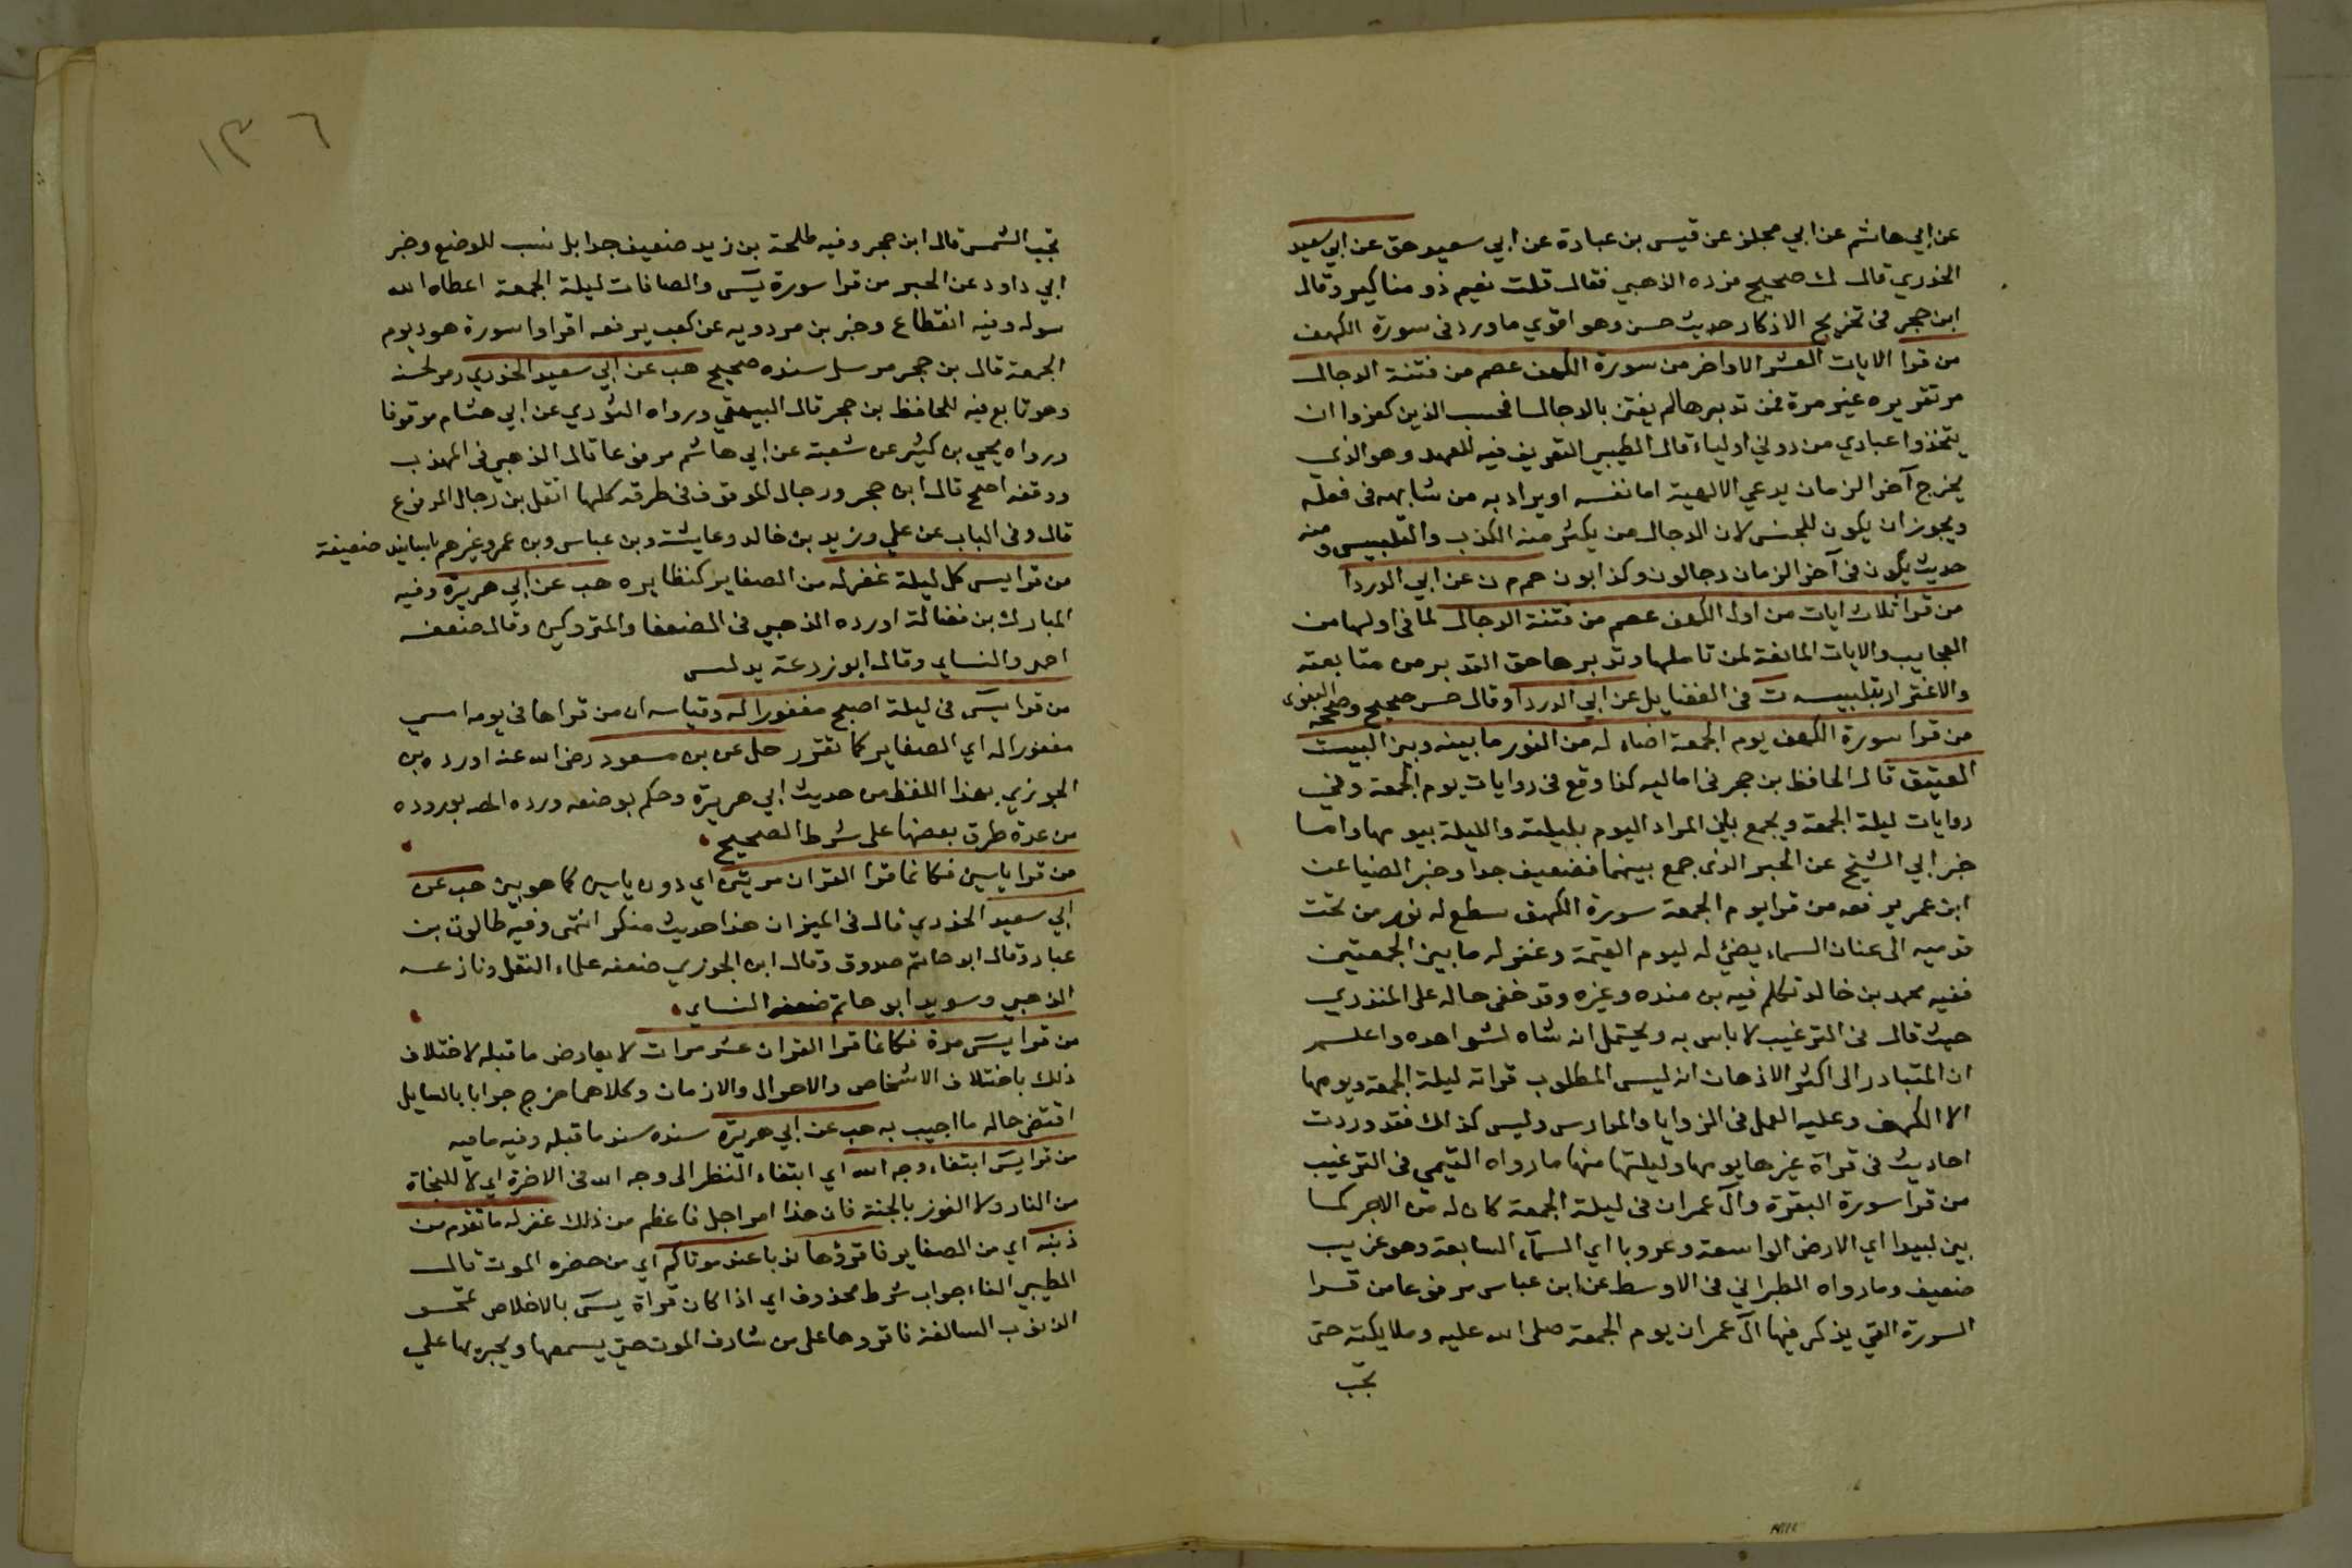 عن ابي هاشم عن ابي مجلز عن قيس بن عبادة عن ابي سعيد هق عن ابي سعيد
الخدري قال ك صحيح فرده الذهبي فقال قلت نعيم ذو مناكير وقال
ابن حجر في تخريج الاذكار حديث حسن وهو اقوي ما ورد في سورة الكهف
من قرا الايات العشر الاواخر من سورة الكهف عصم من فتنة الدجال
مر تقريره غير مرة فمن تدبرها لم يفتن بالدجال افحسب الذين كفروا ان
يتخذوا عبادي من دوني اولياء قال الطيبي التعريف فيه للعهد وهو الذي
يخرج آخر الزمان يدعي الالهية اما نفسه او يراد به من شابهه في فعله
ويجوز ان يكون للجنس لان الدجال من يكثر منه الكذب والتلبيس ومنه
حديث يكون في آخر الزمان دجالون وكذابون حم م ن عن ابي الدردا
من قرا ثلاث ايات من اول الكهف عصم من فتنة الدجال لما في اولها من
العجايب والايات المانعة لمن تاملها وتدبرها حق التدبر من متابعته
والاغترار بتلبيسه ت في الفضايل عن ابي الدردا وقال حسن صحيح وصححه البغوى
من قرا سورة الكهف يوم الجمعة اضاء له من النور ما بينه وبين البيت
العتيق قال الحافظ بن حجر في اماليه كذا وقع في روايات يوم الجمعة وفي
روايات ليلة الجمعة ويجمع بان المراد اليوم بليلته والليلة بيومها واما
خبر ابي الشيخ عن الحبر الذى جمع بينهما فضعيف جدا وخبر الضيا عن
ابن عمر يرفعه من قرا يوم الجمعة سورة الكهف سطع له نور من تحت
قدميه الى عنان السماء يضئ له ليوم القيمة وغفر له ما بين الجمعتين
ففيه محمد بن خالد تكلم فيه بن منده وغيره وقد خفى حاله على المنذري
حيث قال في الترغيب لا باس به ويحتمل انه شاه لشواهده واعلم
ان المتبادر الى اكثر الاذهان انه ليس المطلوب قراته ليلة الجمعة ويومها
الا الكهف وعليه العمل في الزوايا والمدارس وليس كذلك فقد وردت
احاديث في قراة غيرها يومها وليلتها منها ما رواه التيمي في الترغيب
من قرا سورة البقرة وآل عمران في ليلة الجمعة كان له من الاجر كما
بين لبيدا اي الارض الواسعة وعروبا اي السمآء السابعة وهو غريب
ضعيف وما رواه الطبراني في الاوسط عن ابن عباس مرفوعا من قرا
السورة التي يذكر فيها آل عمران يوم الجمعة صلى الله عليه وملايكته حتى
تجب
١٣٦
تجب الشمس قال ابن حجر وفيه طلحة بن زيد ضعيف جدا بل نسب للوضع وخبر
ابي داود عن الحبر من قرا سورة يس والصافات ليلة الجمعة اعطاه الله
سوله وفيه انقطاع وخبر بن مردويه عن كعب يرفعه اقراوا سورة هود يوم
الجمعة قال بن حجر مرسل سنده صحيح هب عن ابي سعيد الخدري رمز لحسنه
وهو تابع فيه للحافظ بن حجر قال البيهقي ورواه الثوري عن ابي هشام موقوفا
ورواه يحي بن كثير عن شعبة عن ابي هاشم مرفوعا قال الذهبي في المهذب
ووقفه اصح قال ابن حجر ورجال الموقوف في طرقه كلها اتقن من رجال المرفوع
قال وفي الباب عن علي وزيد بن خالد وعايشة وبن عباس وبن عمر وغيرهم باسانيد ضعيفة
من قرا يس كل ليلة غفر له من الصغاير كنظايره هب عن ابي هريرة وفيه
المبارك بن فضالة اورده الذهبي في الضعفا والمتروكين وقال ضعفه
احمد والنساي وقال ابو زرعة يدلس
من قرا يس في ليلة اصبح مغفورا له وقياسه ان من قراها في يومه امسي
مغفورا له اي الصغاير كما تقرر حل عن بن مسعود رضى الله عنه اورده بن
الجوزي بهذا اللفظ من حديث ابي هريرة وحكم بوضعه ورده المص بوروده
من عدة طرق بعضها على شرط الصحيح
من قرا ياسين فكانما قرا القران مرتين اي دون ياسين كما هو بين هب عن
ابي سعيد الخدري قال في الميزان هذا حديث منكر انتهى وفيه طالوت بن
عباد وقال ابو حاتم صدوق وقال ابن الجوزي ضعفه علماء النقل ونازعه
الذهبي وسويد ابو حاتم ضعفه النساي
من قرا يس مرة فكانما قرا القران عشر مرات لا يعارض ما قبله لاختلاف
ذلك باختلاف الاشخاص والاحوال والازمان وكلاهما خرج جوابا بالسايل
اقتضى حاله ما اجيب به هب عن ابي هريرة سنده سند ما قبله وفيه ما فيه
من قرا يس ابتغاء وجه الله اي ابتغاء النظر الى وجه الله في الاخرة اي لا للنجاة
من النار ولا الفوز بالجنة فان هذا امر اجل فاعظم من ذلك غفر له ما تقدم من
ذنبه اي من الصغاير فاقروها ندبا عند موتاكم اي من حضره الموت قال
الطيبي الفاء جواب شرط محذوف اي اذا كان قراة يس بالاخلاص تمحو
الذنوب السالفة فاقروها على من شارف الموت حتى يسمعها ويجريها علي